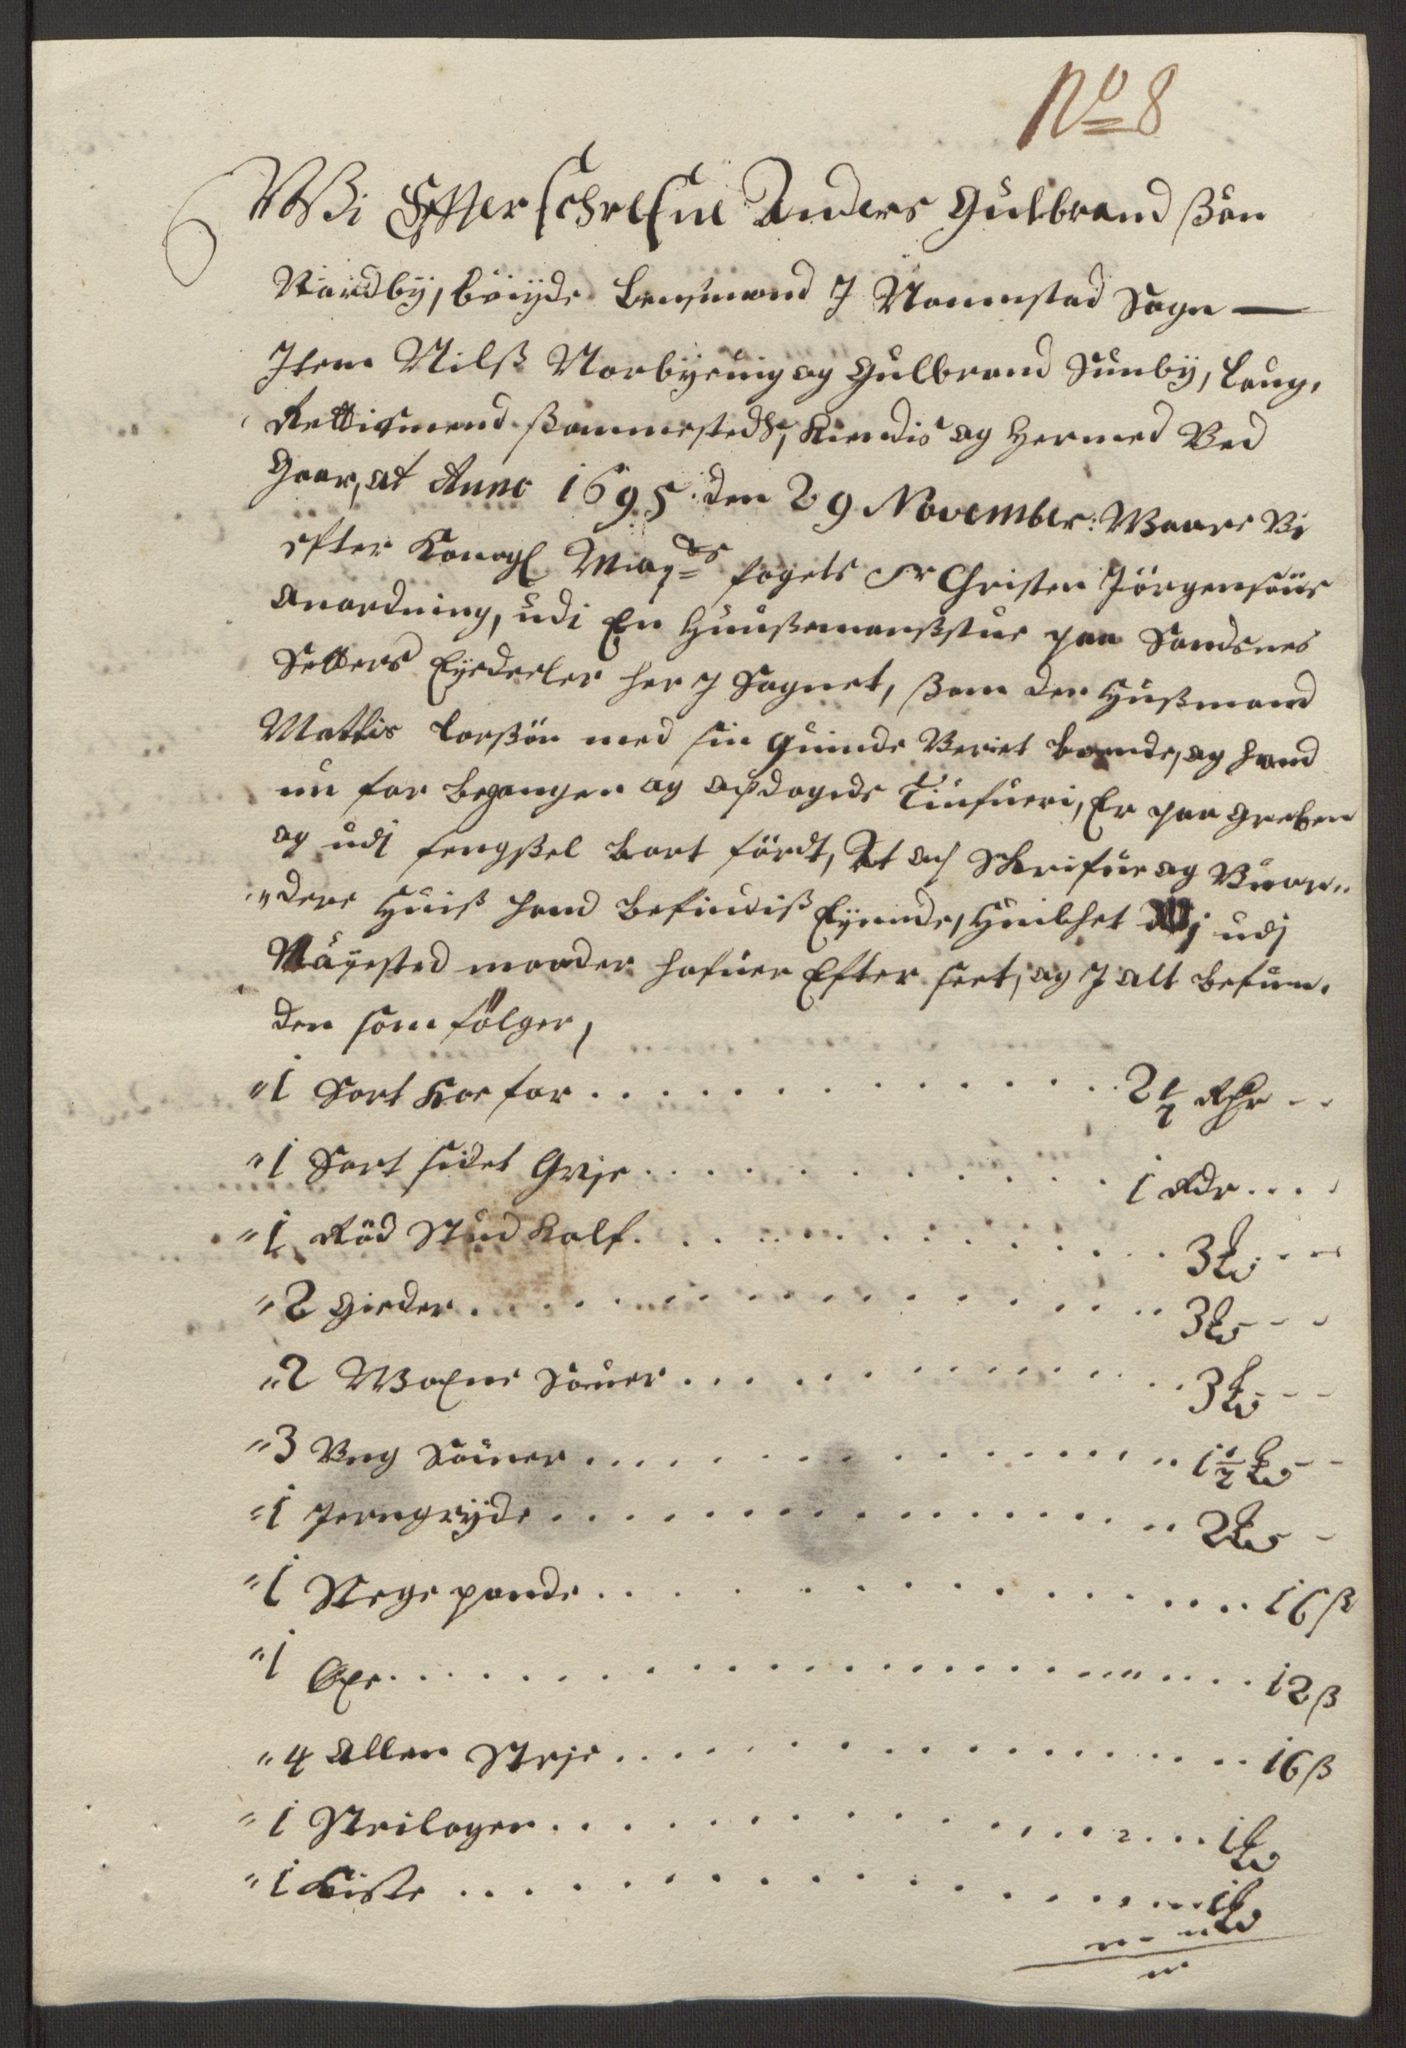 No 8
Wi Effterschrefne Anders Gulbrandßön
Nordby, böiyde Lensmand J Nannestad Sogn —
Item Nilß Norbyeuig og Gulbrand Sunby, Laug,
Rettismend ßammesteds, Kiendis og hermed Ved
gaar, at Anno 1695 den 29 November: Waare Vi
efter Kongl May:ts fogets Sr Christen Jörgensöns
anordning, udi En Huußmanßstue paa Sandsnes
Setters Eyedeeler her J Sognet, ßom der Hußmand
Mattis Larßön med sin quinde Beriet boende, og hand
nu for begangen og opdagede Tiufueri, Er paa greben
og udj fengßel bort fördt, At och Schrifue og Vuor„
„dere huiß hand befindiß Eyende, Huilchet Wj udj
maader hafuer Efter seet, og J alt befun,
den som fölger,
„1 Sort Koe for . . . . . 2 1/2 Rdr
„1 Sort sidet Qvje . . . . . 1 Rdr
„1 Röd Stud Kalf . . . . . 3 ort
„2 Gieder . . . . . 3 ort
„2 Woxne Souer . . . . . 3 ort
„3 Vng Souer . . . . . 1 1/2 ort
„1 Jerngryde . . . . . 2 ort
„1 Stege pande . . . . . 16 ß
„1 Öxe . . . . . 12 ß
„4 Allen Strje . . . . . 16 ß
„1 Strilagen . . . . . 1 ort
„1 Kiste . . . . . 1 ort